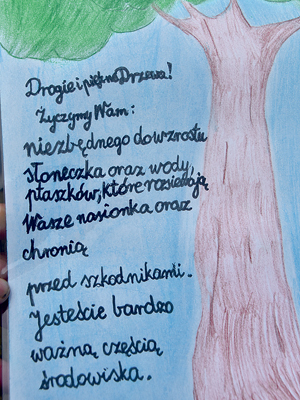 Drogie i piękne Drzewa!
Życzymy Wam:
niezbędnego do wzrostu
słoneczka oraz wody,
ptaszków, które rozsiewają
Wasze nasionka oraz
chronią
przed szkodnikami.
Jesteście bardzo
ważną częścią
środowiska.